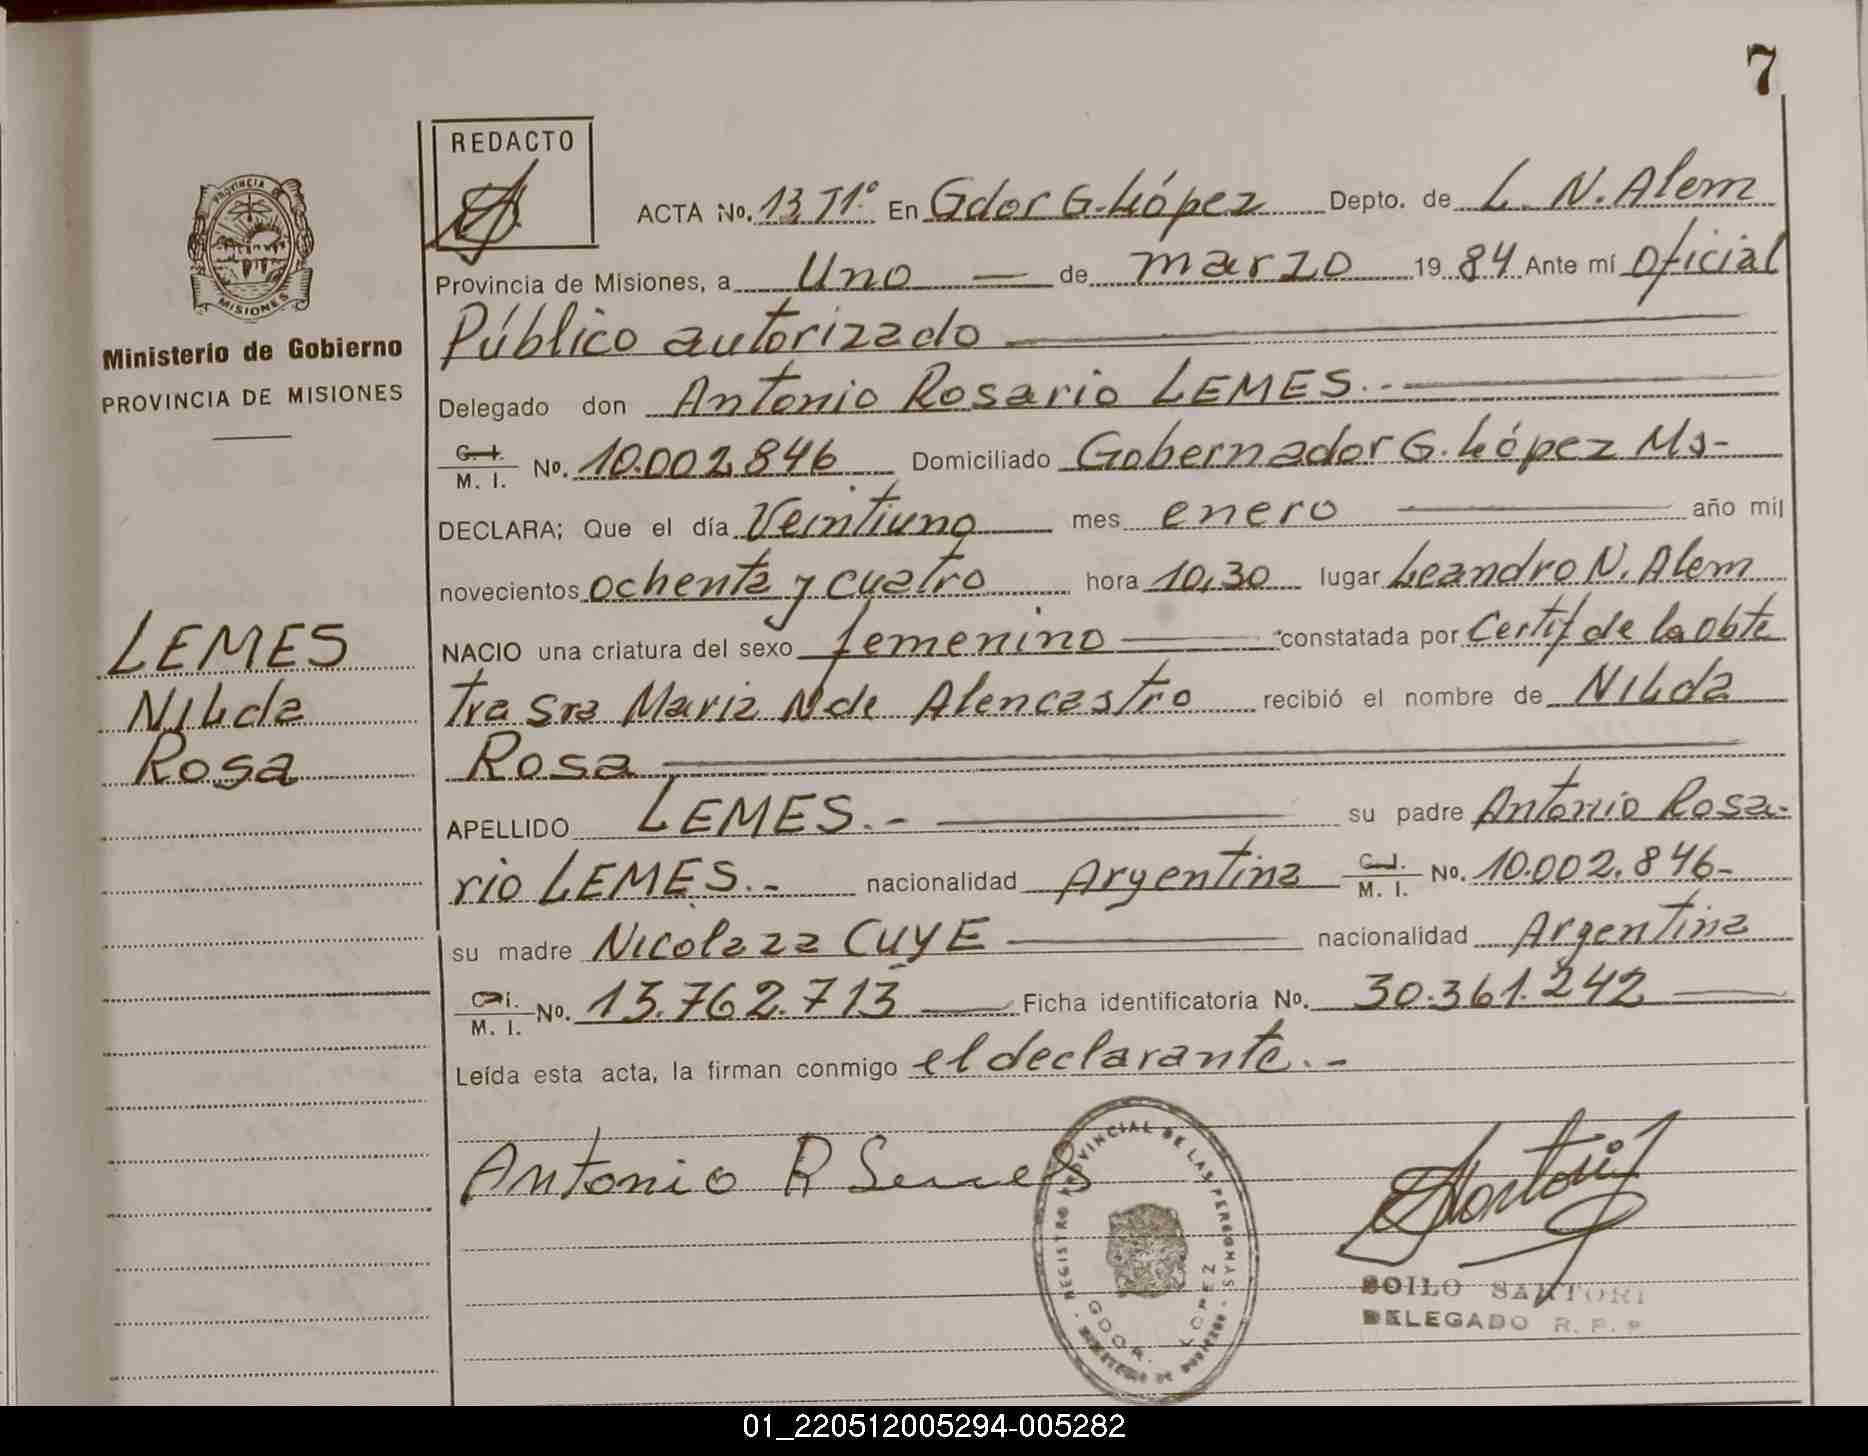 7
REDACTO
PROVINCIA DE
MISIONES
Ministerio de Gobierno
PROVINCIA DE MISIONES
LEMES
Nilda
Rosa
ACTA No. 13 T1º En Gdor G. López Depto. de L. N. Alem
Provincia de Misiones, a Uno — de marzo 19 84 Ante mí Oficial
Público autorizado
Delegado don Antonio Rosario LEMES.-
C. I. M. I. No. 10.002.846 Domiciliado Gobernador G. López Ms-
DECLARA; Que el día Veintiuno mes enero — año mil
novecientos ochenta y cuatro hora 10,30 lugar Leandro N. Alem
NACIO una criatura del sexo femenino — constatada por Certif de la obte
tra Sra Maria N de Alencastro recibió el nombre de Nilda
Rosa
APELLIDO LEMES.- su padre Antonio Rosa-
rio LEMES.- nacionalidad Argentina C. I. M. I. No. 10.002.846-
su madre Nicolaza CUYE — nacionalidad Argentina
C. I. M. I. No. 13.762.713 — Ficha identificatoria No. 30.361.242 —
Leída esta acta, la firman conmigo el declarante.-
Antonio R Lemes
REGISTRO PROVINCIAL DE LAS PERSONAS
GDOR. LOPEZ
MINISTERIO DE GOBIERNO
Sartori
SOILO SARTORI
DELEGADO R. P. P.
01_220512005294-005282